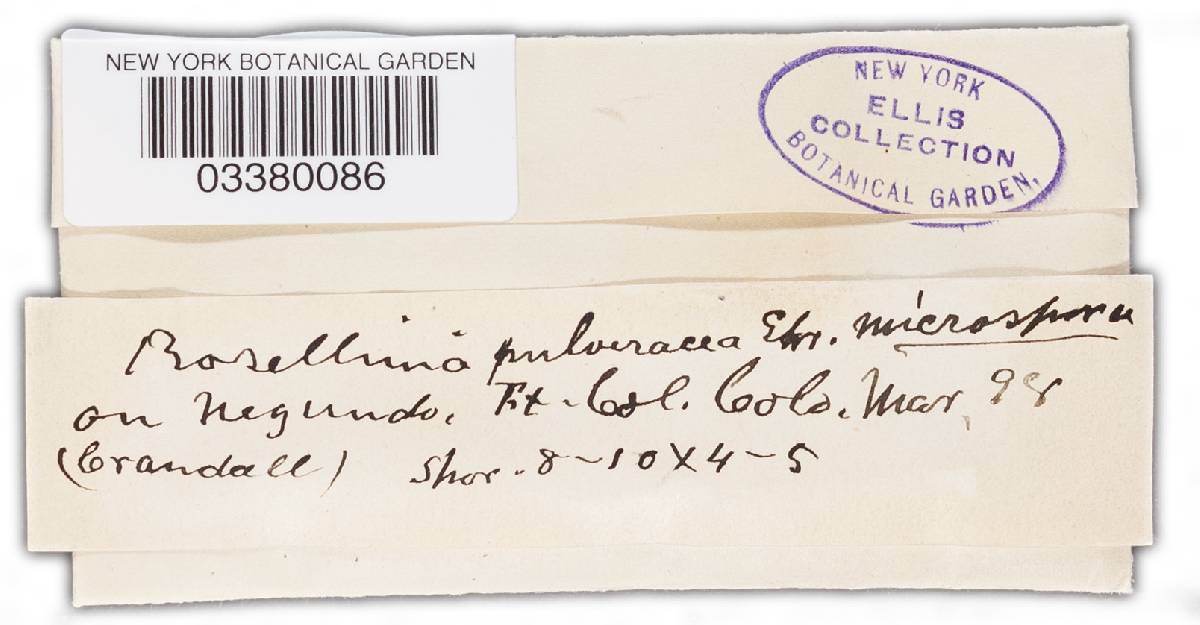 NEW YORK BOTANICAL GARDEN
03380086
NEW YORK
ELLIS
COLLECTION
BOTANICAL GARDEN.
Rosellinia pulveracea Ehr. microspora
on Negundo. Ft. Col. Colo. Mar. 98
(Crandall) Spor. 8-10 X 4-5